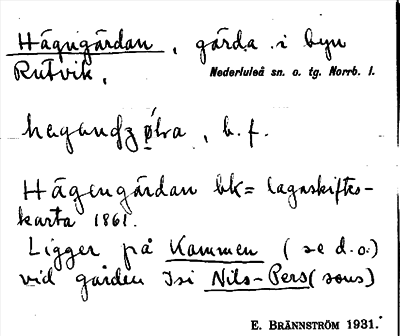 Hägngärdan, gärda i byn
Rutvik, Nederluleå sn. o. tg. Norrb. l.
b. f.
Hägengärdan bk = lagaskiftes-
karta 1861.
Ligger på Kammen (se d.o.)
vid gården Isi Nils-Pers (sons)
E. BRÄNNSTRÖM 1931.